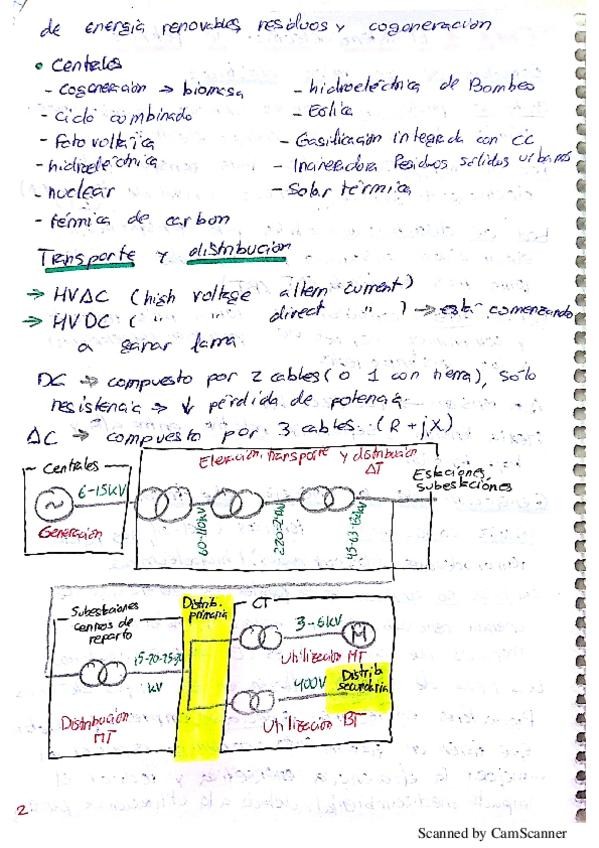 de energía renovables residuos y cogeneración
• Centrales
- Cogeneración → biomasa
- Ciclo combinado
- Fotovoltaica
- hidroeléctrica
- nuclear
- térmica de carbon
- hidroeléctrica de Bombeo
- Eólica
- Gasificación integrada con CC
- Incineradora Residuos sólidos urbanos
- Solar térmica
Transporte y distribución
→ HVAC (high voltage altern current)
→ HVDC ( " " direct " ) → está comenzando
a ganar fama
DC → compuesto por 2 cables (o 1 con tierra), sólo
resistencia → ↓ pérdida de potencia
AC → compuesto por 3 cables (R + jX)
Centrales
6-15kV
Generación
Elevación, transporte y distribución
AT
60-110kV
220-
45-63-
Estaciones,
subestaciones
Subestaciones
centros de
reparto
15-20-25-
kV
Distribución
MT
Distrib.
primaria
CT
3-6kV
M
Utilización MT
400V
Distrib
secundaria
Utilización BT
2
Scanned by CamScanner